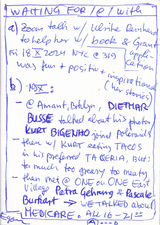 WAITING FOR / @ / with
a) Zoom talk w/ Ulrike Reinhard
to help her w/ book & Grant
Fri 18 X 2024 NYC @ 319 application
was fun + positive + inspirational
(her stories)
b) 18X:
- @ Amant, Bklyn, DIETMAR
BUSSE talked about his photos
KURT BIGENHO joined polaroids
- then w/ KURT eating TACOS
in his preferred TAQUERIA, BUT:
much too greasy to greasy
- then met @ ONE on ONE East
Village Petra Gehring & Pascale
Burkart → WE TALKED ABOUT
MEDICARE. ALL 16 - 21